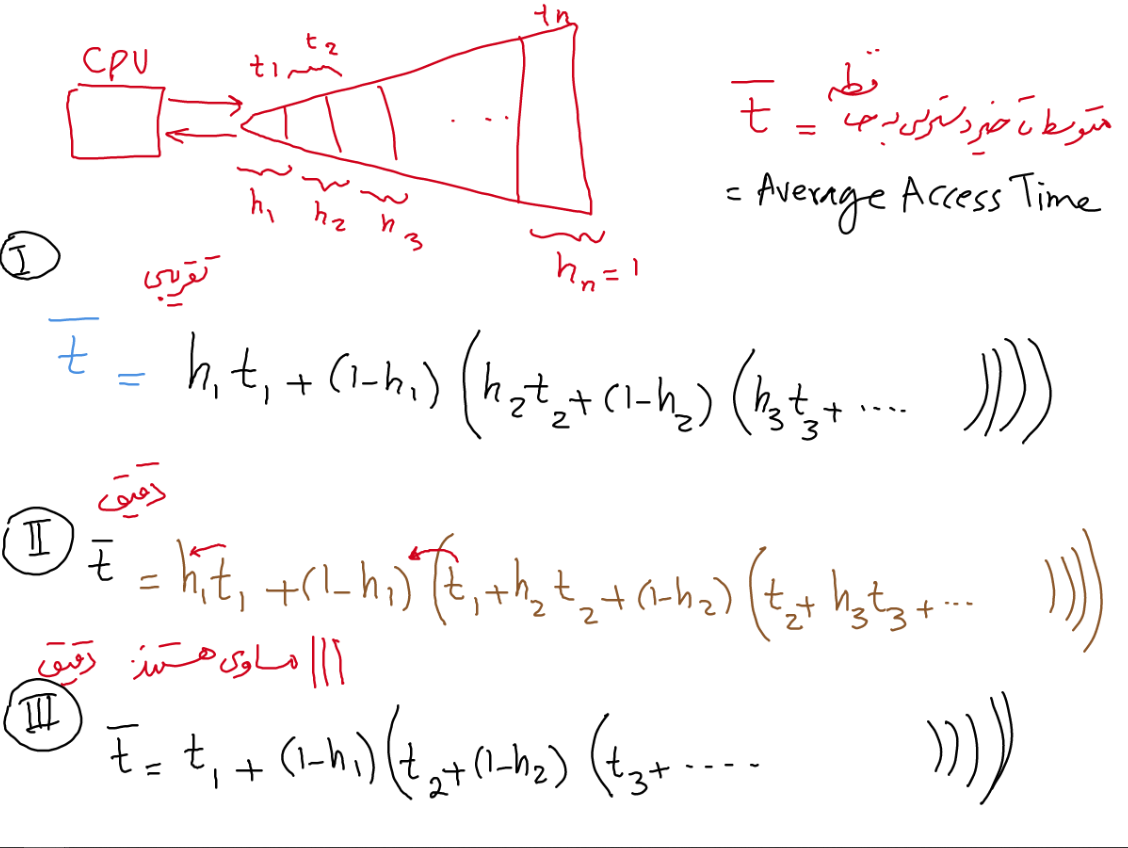 CPU
t₁ t₂ tn
h₁ h₂ h₃
hₙ = 1
t̄ = متوسط تأخیر دسترسی به حافظه
= Average Access Time
I
تقریبی
t̄ = h₁t₁ + (1-h₁) (h₂t₂ + (1-h₂) (h₃t₃ + .... ))))
دقیق
II t̄ = h₁t₁ + (1-h₁) (t₁ + h₂t₂ + (1-h₂) (t₂ + h₃t₃ + ... ))))
دقیق مساوی هستند
III t̄ = t₁ + (1-h₁) (t₂ + (1-h₂) (t₃ + .... )))))